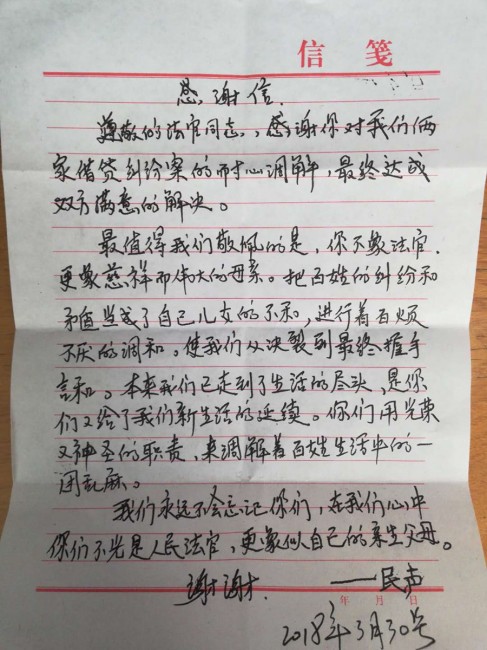 信笺
感谢信.
尊敬的法官同志,感谢你对我们俩
家借贷纠纷案的耐心调解,最终达成
双方满意的解决。
最值得我们敬佩的是,你不象法官.
更象慈祥而伟大的母亲。把百姓的纠纷和
矛盾当成了自己儿女的不和,进行着百烦
不厌的调和。使我们从决裂到最终握手
言和。本来我们已走到了生活的尽头,是你
们又给了我们新生活的延续。你们用光荣
又神圣的职责,来调解着百姓生活中的一
团乱麻。
我们永远不会忘记你们,在我们心中
你们不光是人民法官,更象似自己的亲生父母。
谢谢.
——民声
年 月 日
2018年3月30号